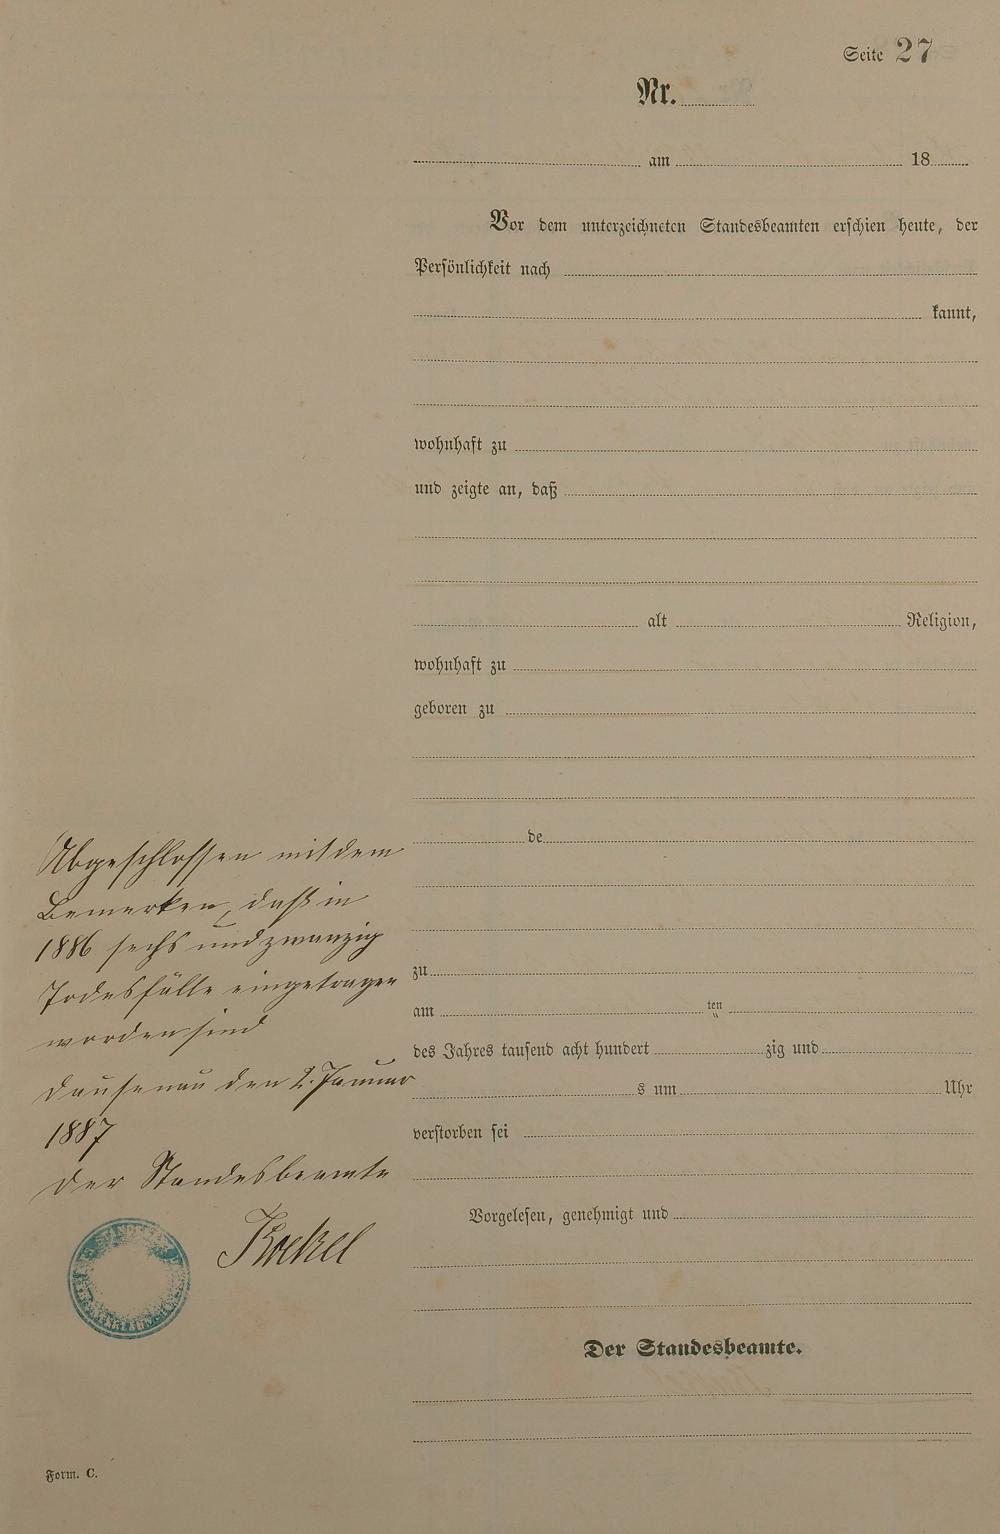 Seite 27
Nr.
am 18
Vor dem unterzeichneten Standesbeamten erschien heute, der
Persönlichkeit nach
kannt,
wohnhaft zu
und zeigte an, daß
alt Religion,
wohnhaft zu
geboren zu
de
zu
am ten
des Jahres tausend acht hundert zig und
s um Uhr
verstorben sei
Vorgelesen, genehmigt und
Der Standesbeamte.
Abgeschlossen mit dem
Bemerken, daß in
1886 sechs und zwanzig
Todesfälle eingetragen
worden sind
Dausenau den 2. Januar
1887
Der Standesbeamte
Form. C.